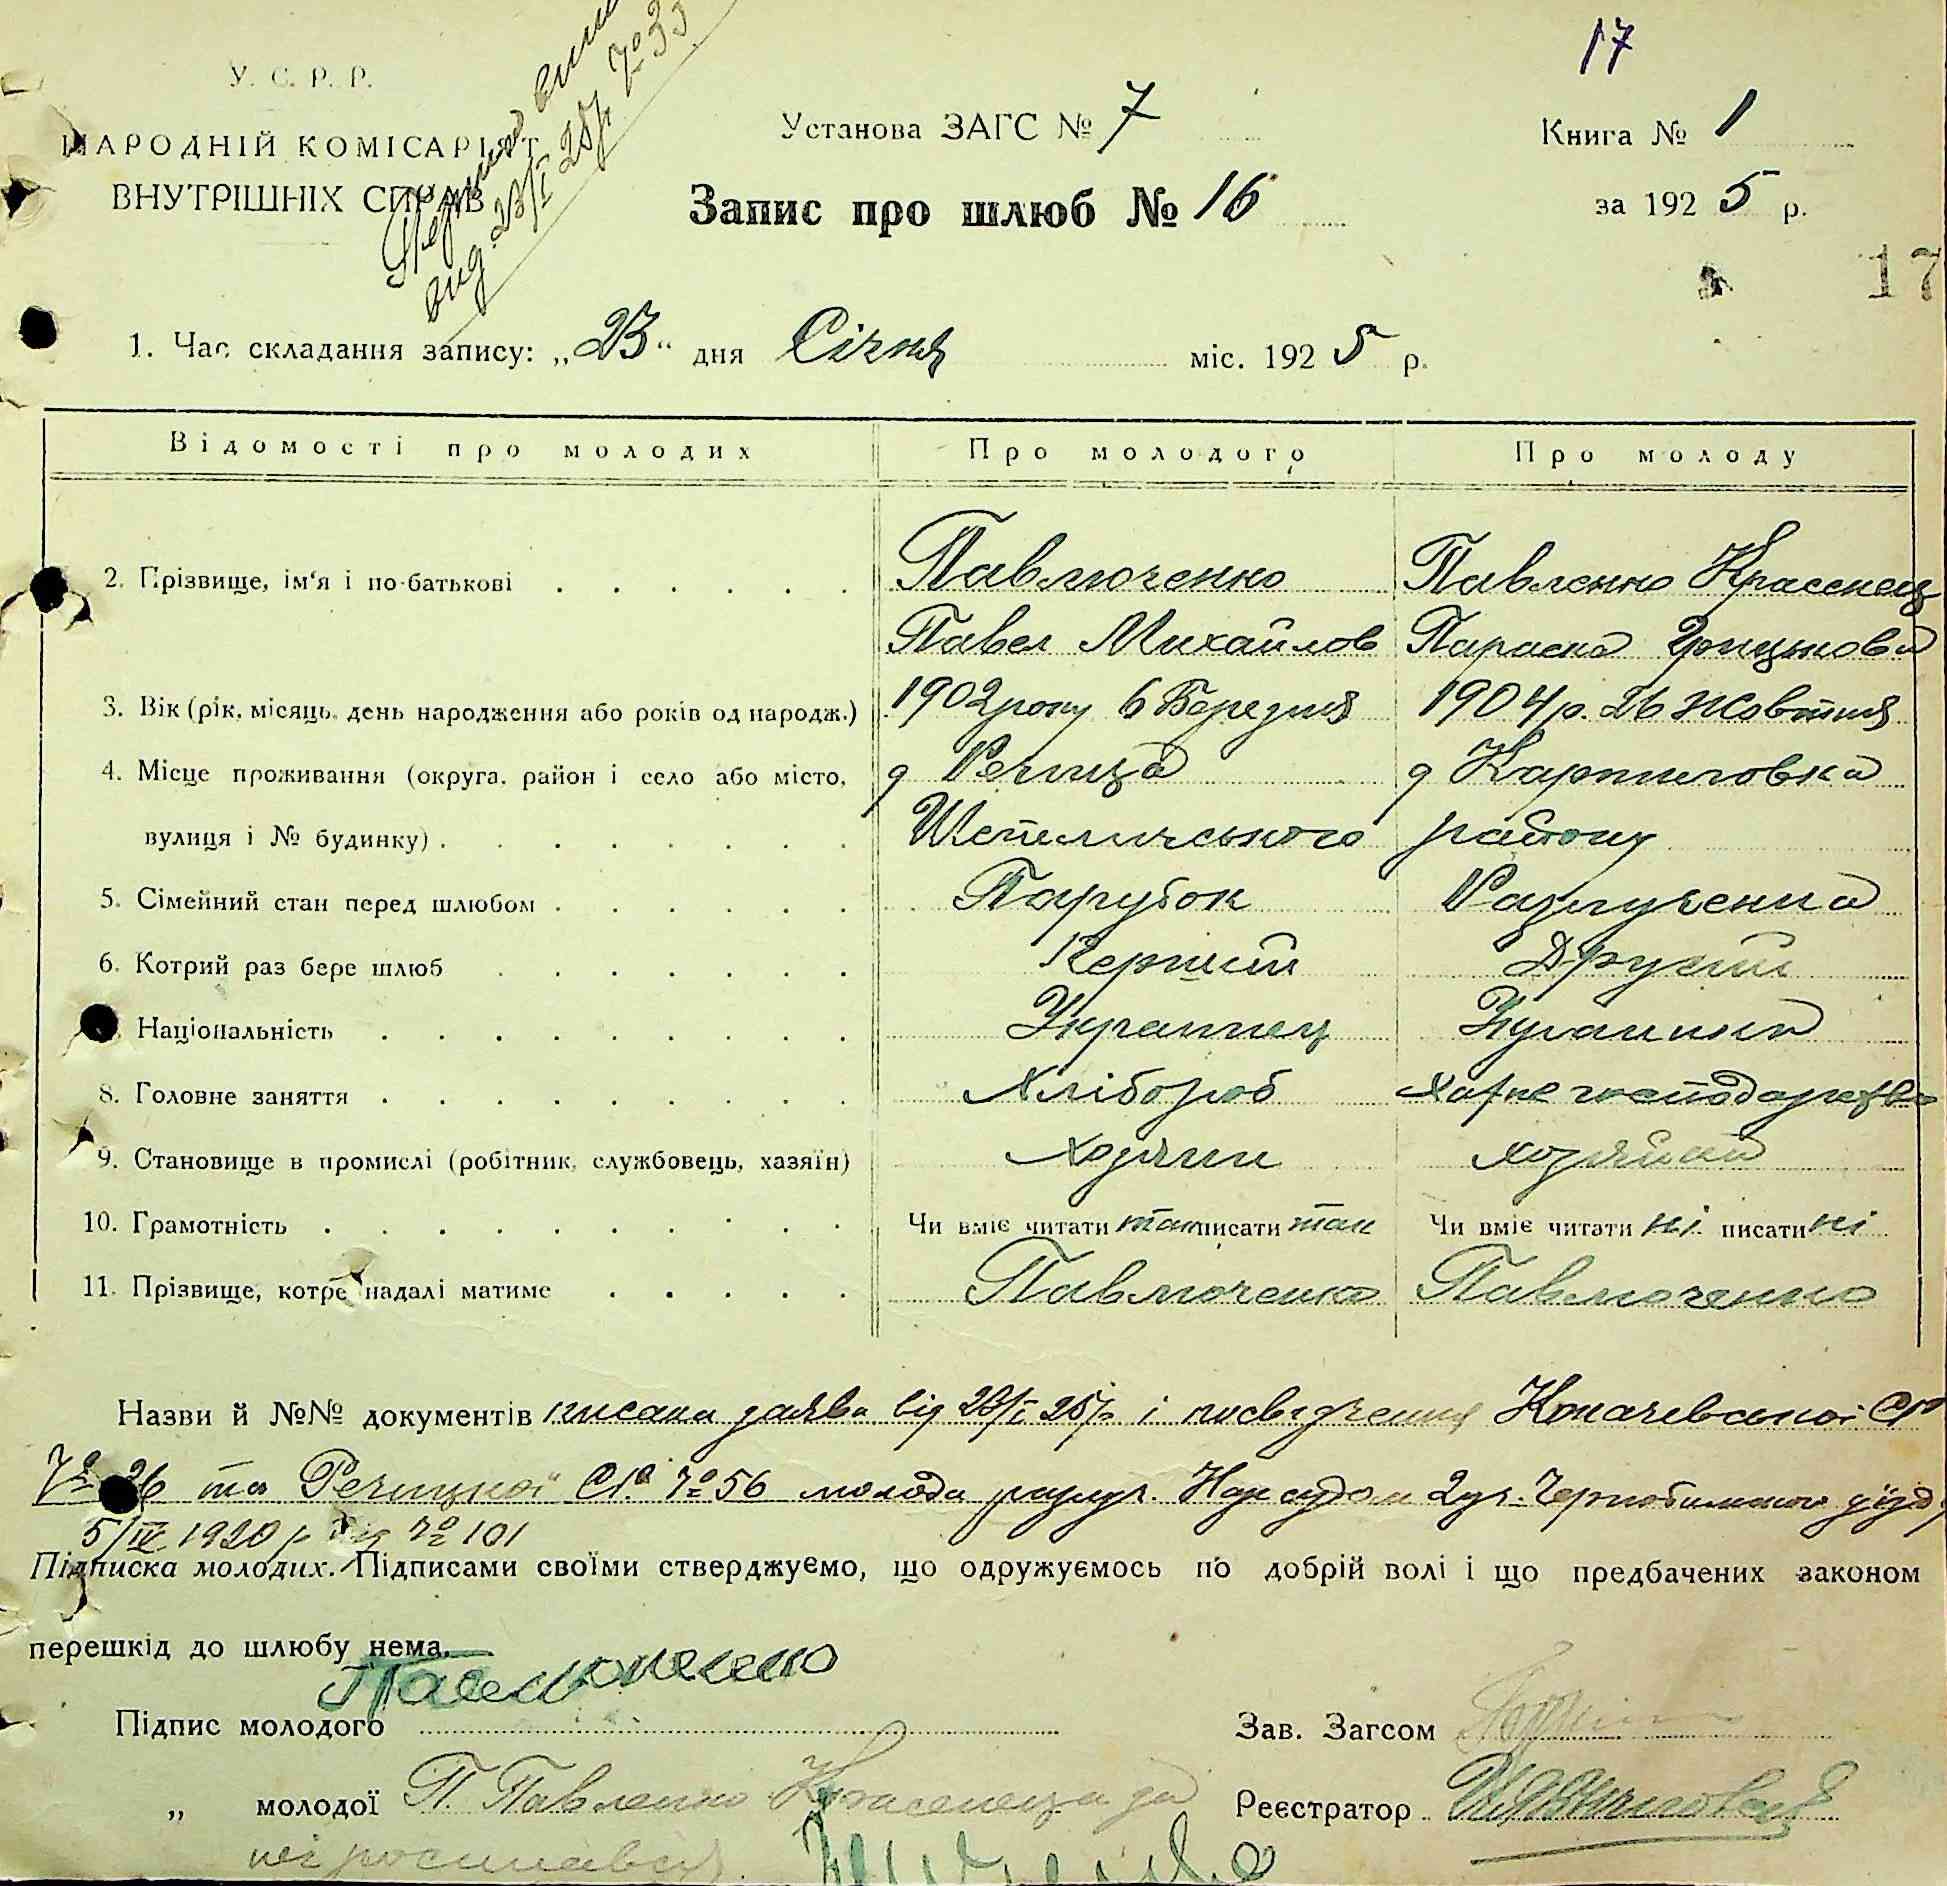 17
У. С. Р. Р.
НАРОДНІЙ КОМІСАРІЯТ
ВНУТРІШНІХ СПРАВ
вид. 23/I 25р. № 33
Установа ЗАГС № 7
Книга № 1
Запис про шлюб № 16
за 1925 р.
17
1. Час складання запису: „23“ дня Січня міс. 1925 р.
Відомості про молодих Про молодого Про молоду
2. Прізвище, ім'я і по-батькові Павлюченко Павленко Красенец
Павел Михайлов Параска Грицькова
3. Вік (рік, місяць, день народження або років од народж.) 1902 року 6 Березня 1904 р. 26 Жовтня
4. Місце проживання (округа, район і село або місто, д Речица д Карпиловка
вулиця і № будинку) Шепеличського району
5. Сімейний стан перед шлюбом Парубок Разлученна
6. Котрий раз бере шлюб Перший Другий
Національність Украинец
8. Головне заняття Хлібороб Хатне господарство
9. Становище в промислі (робітник, службовець, хазяїн) Хозяин хозяйка
10. Грамотність Чи вміє читати так писати так Чи вміє читати ні писати ні
11. Прізвище, котре надалі матиме Павлюченко Павлюченко
Назви й №№ документів писана заява від 23/I 25р. і посвідчення Копачевської СР
№ 26 та Речицкої СР. № 56 молода разлуч. Нарсудом 2 уч. Чорнобильского уїзд.
5/IV 1920 р № 101
Підписка молодих. Підписами своїми стверджуємо, що одружуємось по добрій волі і що предбачених законом
перешкід до шлюбу нема.
Підпис молодого Павлюченко
Зав. Загсом
„ молодої П. Павленко Красенец а за
Реєстратор
неї росписався